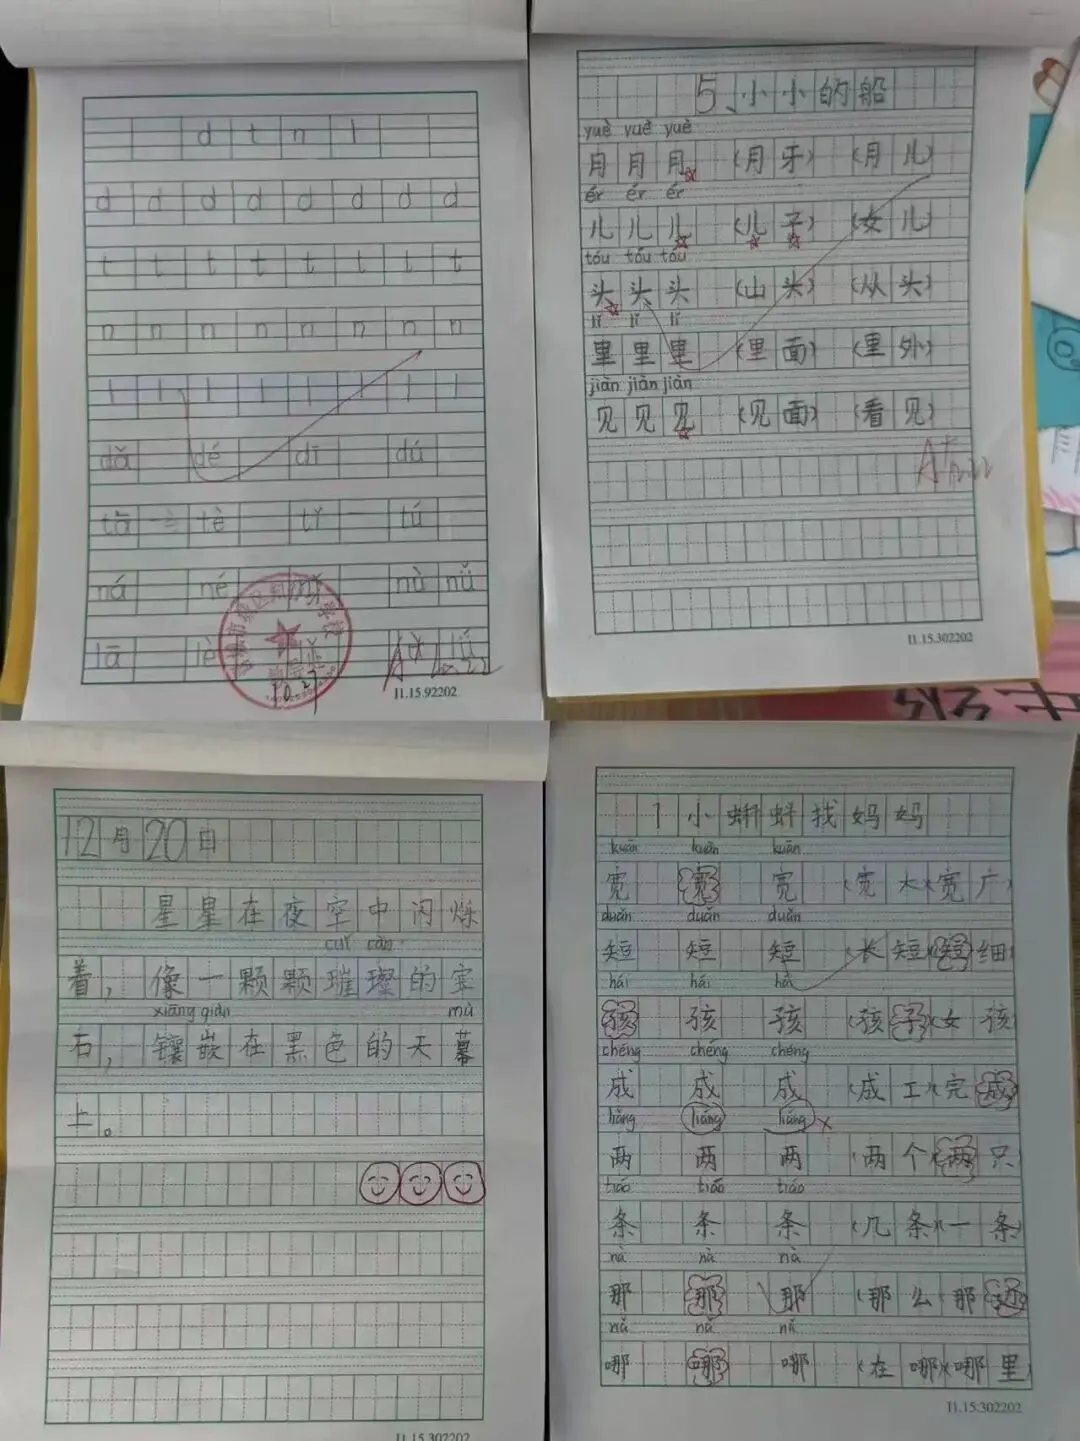 d t n l
d d d d d d d d
t t t t t t t t
n n n n n n n n
l l l l l l l l
dǎ dé dī dú
tā tè tǐ tú
ná né nǐ nù nǚ
lā lè lǘ
10.27
A
I1.15.92202
5、小小的船
yuè yuè yuè
月月月 (月牙) (月儿)
ér ér ér
儿儿儿 (儿子) (女儿)
tóu tóu tóu
头头头 (山头) (从头)
lǐ lǐ lǐ
里里里 (里面) (里外)
jiàn jiàn jiàn
见见见 (见面) (看见)
A+
I1.15.302202
12月20日
星星在夜空中闪烁
cuǐ càn
着，像一颗颗璀璨的宝
xiāng qiàn mù
石，镶嵌在黑色的天幕
上。
I1.15.302202
1 小蝌蚪找妈妈
kuān kuān kuān
宽 宽 宽 (宽大)(宽广)
duǎn duǎn duǎn
短 短 短 (长短)(短细)
hái hái hái
孩 孩 孩 (孩子)(女孩)
chéng chéng chéng
成 成 成 (成工)(完成)
liǎng liáng liáng
两 两 两 (两个)(两只)
tiáo tiáo tiáo
条 条 条 (几条)(一条)
nà nà nà
那 那 那 (那么)(那边)
nǎ nǎ nǎ
哪 哪 哪 (在哪)(哪里)
I1.15.302202